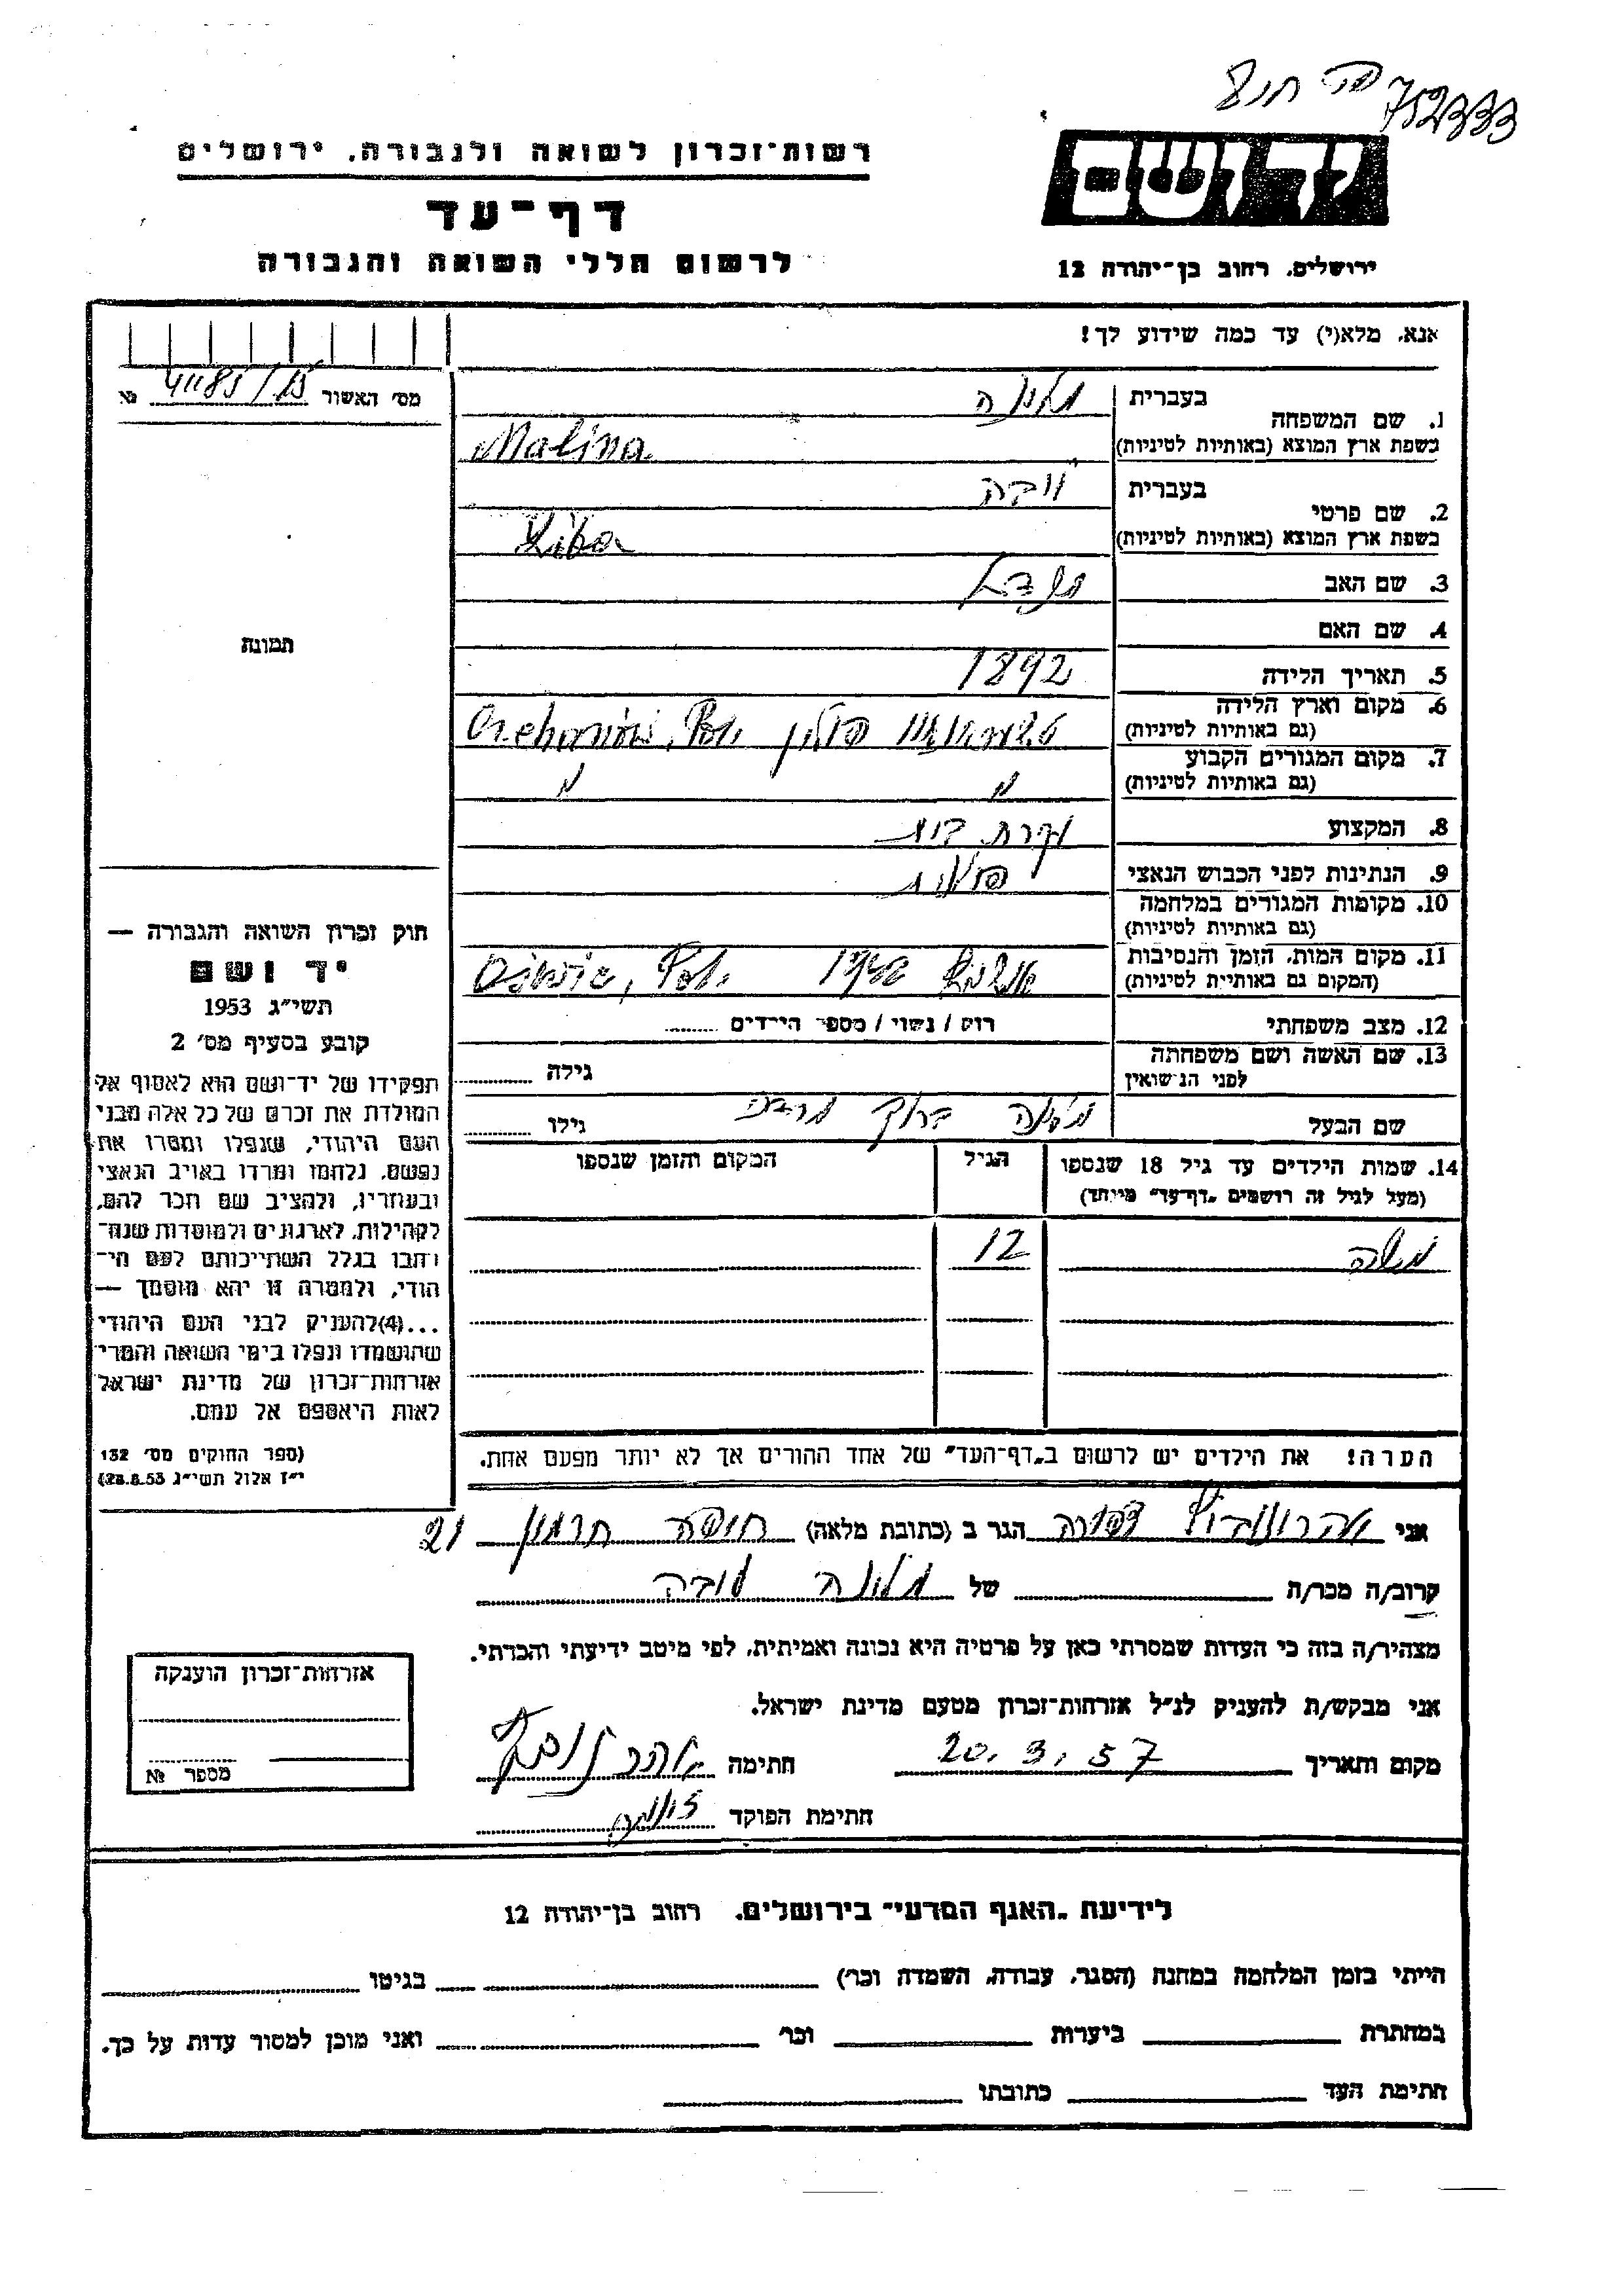 752333
רשות־זכרון לשואה ולגבורה. ירושלים
יד ושם
דף־עד
לרשום חללי השואה והגבורה
ירושלים. רחוב בן־יהודה 12
אנא. מלא(י) עד כמה שידוע לך!
מס׳ האשור № 41185/15
1. שם המשפחה
בעברית מלינה
בשפת ארץ המוצא (באותיות לטיניות) Malina
2. שם פרטי
בעברית
בשפת ארץ המוצא (באותיות לטיניות)
3. שם האב
4. שם האם
5. תאריך הלידה 1892
6. מקום וארץ הלידה
(גם באותיות לטיניות) פולין
7. מקום המגורים הקבוע
(גם באותיות לטיניות) " "
8. המקצוע עקרת בית
9. הנתינות לפני הכבוש הנאצי פולנית
10. מקומות המגורים במלחמה
(גם באותיות לטיניות)
11. מקום המות. הזמן והנסיבות
(המקום גם באותיית לטיניות) 1942
12. מצב משפחתי רוק / נשוי / מספר הילדים
13. שם האשה ושם משפחתה
לפני הנישואין גילה
שם הבעל מלינה ברוך גילו
14. שמות הילדים עד גיל 18 שנספו
(מעל לגיל זה רושמים „דף־עד״ מייחד)
הגיל
המקום והזמן שנספו
משה 12
הערה! את הילדים יש לרשום ב„דף־העד״ של אחד ההורים אך לא יותר מפעם אחת.
תמונה
חוק זכרון השואה והגבורה —
יד ושם
תשי״ג 1953
קובע בסעיף מס׳ 2
תפקידו של יד־ושם הוא לאסוף אל
המולדת את זכרם של כל אלה מבני
העם היהודי, שנפלו ומסרו את
נפשם. נלחמו ומרדו באויב הנאצי
ובעוזריו, ולהציב שם וזכר להם,
לקהילות. לארגונים ולמוסדות שנח־
רבו בגלל השתייכותם לעם הי־
הודי, ולמטרה זו יהא מוסמך —
...(4)להעניק לבני העם היהודי
שהושמדו ונפלו בימי השואה והמרי
אזרחות־זכרון של מדינת ישראל
לאות היאספם אל עמם.
(ספר החוקים מס׳ 132
י״ז אלול תשי״ג 28.8.53)
אני אהרונוביץ צפורה הגר ב (כתובת מלאה) חיפה חרמון 21
קרוב/ה מכר/ה של מלינה טובה
מצהיר/ה בזה כי העדות שמסרתי כאן על פרטיה היא נכונה ואמיתית. לפי מיטב ידיעתי והכרתי.
אני מבקש/ת להעניק לנ״ל אזרחות־זכרון מטעם מדינת ישראל.
מקום ותאריך 20.3.57 חתימה
חתימת הפוקד
אזרחות־זכרון הוענקה
מספר №
לידיעת „האגף המדעי״ בירושלים. רחוב בן־יהודה 12
הייתי בזמן המלחמה במחנה (הסגר. עבודה. השמדה וכר׳) בגיטו
במחתרת ביערות וכר׳ ואני מוכן למסור עדות על כך.
חתימת העד כתובתו